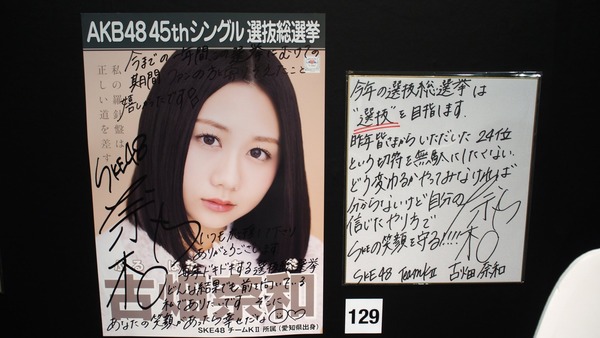 AKB48 45thシングル 選抜総選挙
今までの一年間、選挙にむけての
期間ファンの方に
嬉しかったです
私の羅針盤は
正しい道を差す
SKE48
奈和
いつも応援して下さり
ありがとうございます
毎年ドキドキする選抜総選挙
どんな結果でも前を向いている
私でありたいです。そこに
あなたの笑顔があったら幸せだな
古畑奈和
SKE48 チームKⅡ 所属(愛知県出身)
今年の選抜総選挙は
"選抜"を目指します.
昨年皆さまからいただいた 24位
という切符を無駄にしたくない.
どう変わるかやってみなければ
分からないけど自分の
信じたやり方で
SKEの笑顔を守る!!!!
奈和
SKE48 TeamKⅡ 古畑奈和
129